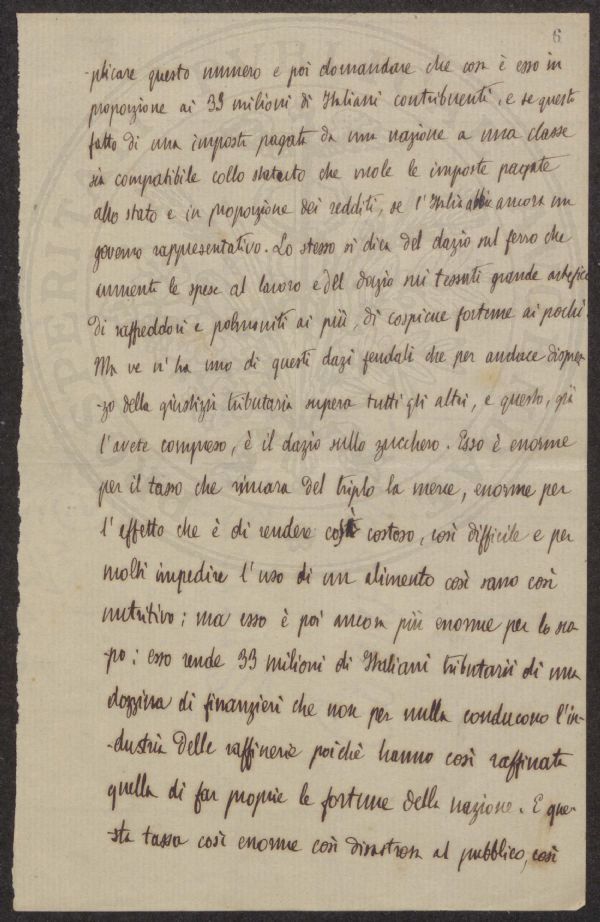 6
-plicare questo numero e poi domandare che cosa è esso in
proporzione ai 33 milioni di Italiani contribuenti, e se questo
fatto di una imposta pagata da una nazione a una classe
sia compatibile collo statuto che vuole le imposte pagate
allo stato e in proporzione dei redditi, se l'Italia abbia ancora un
governo rappresentativo. Lo stesso si dica del dazio sul ferro che
aumenta le spese al lavoro e del dazio sui tessuti grande artefice
di raffreddori e polmoniti ai più, di cospicue fortune ai pochi.
Ma ve n'ha uno di questi dazi feudali che per audace disprez-
-zo della giustizia tributaria supera tutti gli altri, e questo, già
l'avete compreso, è il dazio sullo zucchero. Esso è enorme
per il tasso che rincara del triplo la merce, enorme per
l'effetto che è di rendere così costoso, così difficile e per
molti impedire l'uso di un alimento così sano così
nutritivo; ma esso è poi ancora più enorme per lo sco-
-po; esso rende 33 milioni di Italiani tributarii di una
dozzina di finanzieri che non per nulla conducono l'in-
-dustria delle raffinerie poichè hanno così raffinata
quella di far proprie le fortune della nazione. E que-
-sta tassa così enorme così disastrosa al pubblico, così